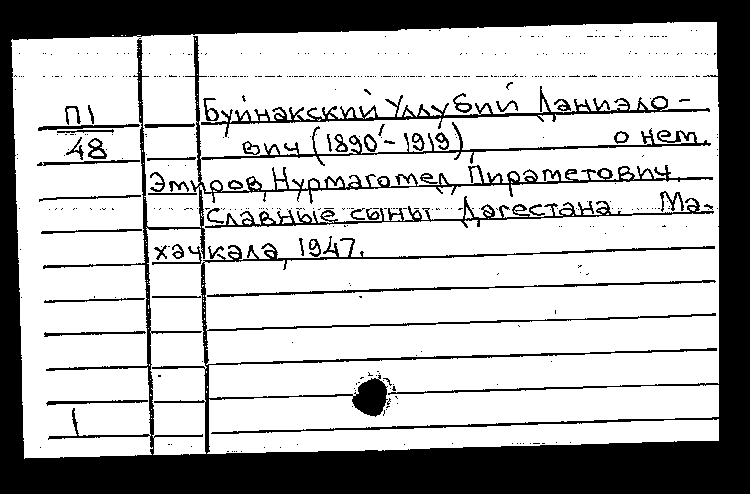 П1
48
Буйнакский Уллубий Даниэло-
вич (1890 - 1919) о нем.
Эмиров, Нурмагомед Пираметович.
Славные сыны Дагестана. Ма-
хачкала, 1947.